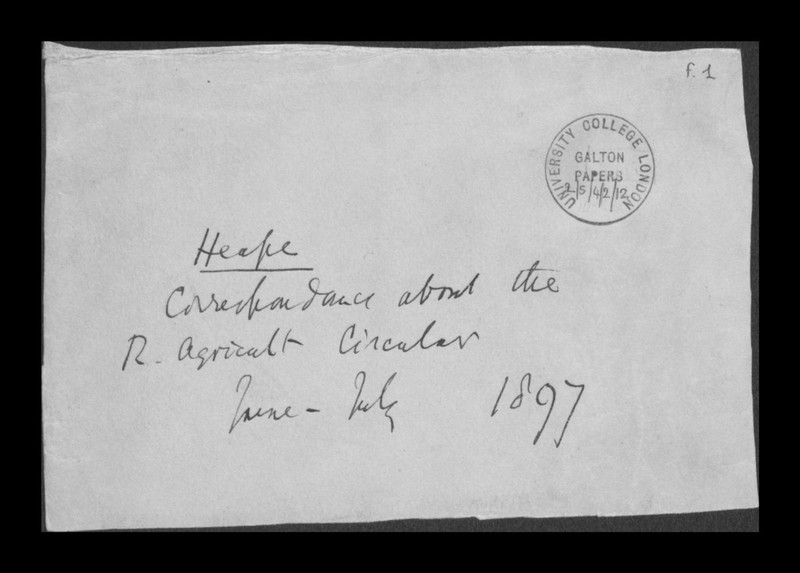 f. 1
UNIVERSITY COLLEGE LONDON
GALTON
PAPERS
2/5/4/2/12
Heape
Correspondance about the
R. Agricult Circular
June - July 1897